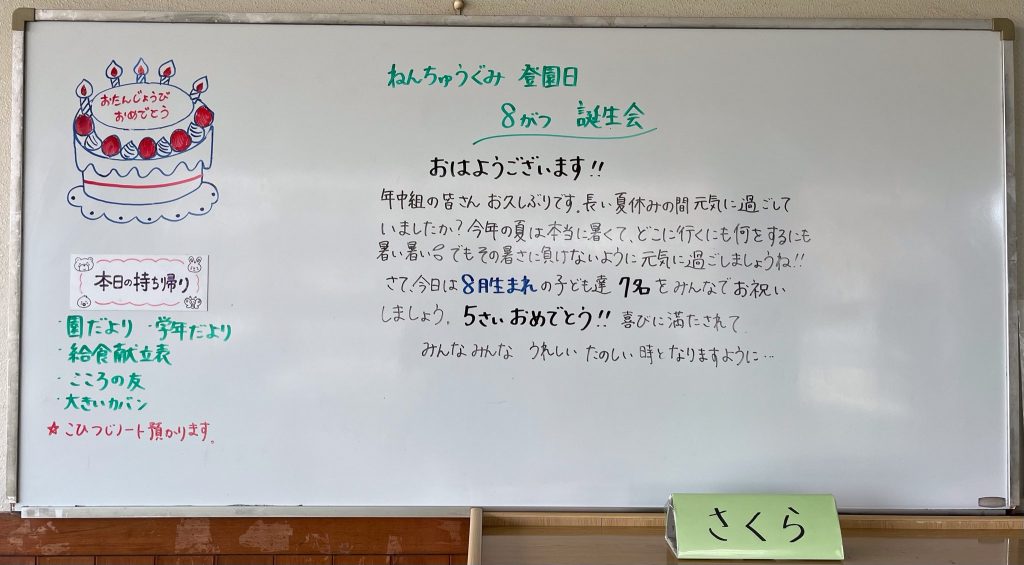 おたんじょうび
おめでとう
本日の持ち帰り
・園だより ・学年だより
・給食献立表
・こころの友
・大きいカバン
☆こひつじノート預かります。
ねんちゅうぐみ 登園日
8がつ 誕生会
おはようございます!!
年中組の皆さん お久しぶりです。長い夏休みの間 元気に過ごして
いましたか?今年の夏は本当に暑くて、どこに行くにも何をするにも
暑い暑い。でもその暑さに負けないように 元気に過ごしましょうね!!
さて、今日は 8月生まれ の子ども達 7名 をみんなでお祝い
しましょう。5さい おめでとう!! 喜びに満たされて
みんなみんな うれしい たのしい 時となりますように…
さくら